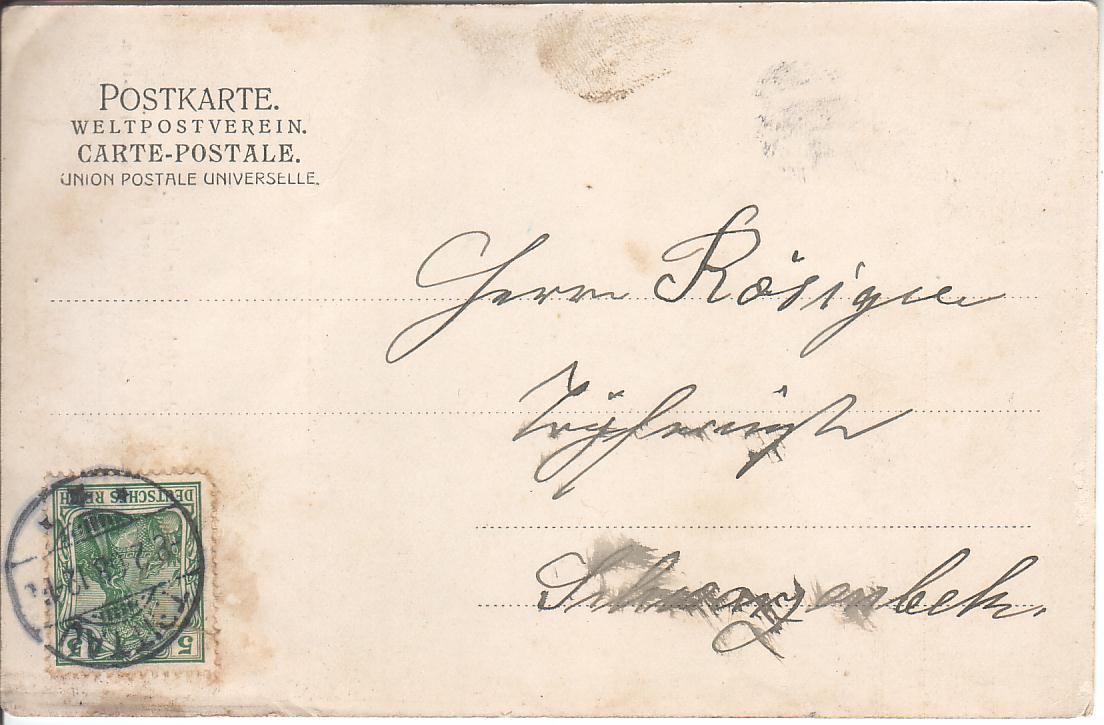 POSTKARTE.
WELTPOSTVEREIN.
CARTE-POSTALE.
UNION POSTALE UNIVERSELLE.
Herrn
Schwarzenbek.
DEUTSCHES REICH
5